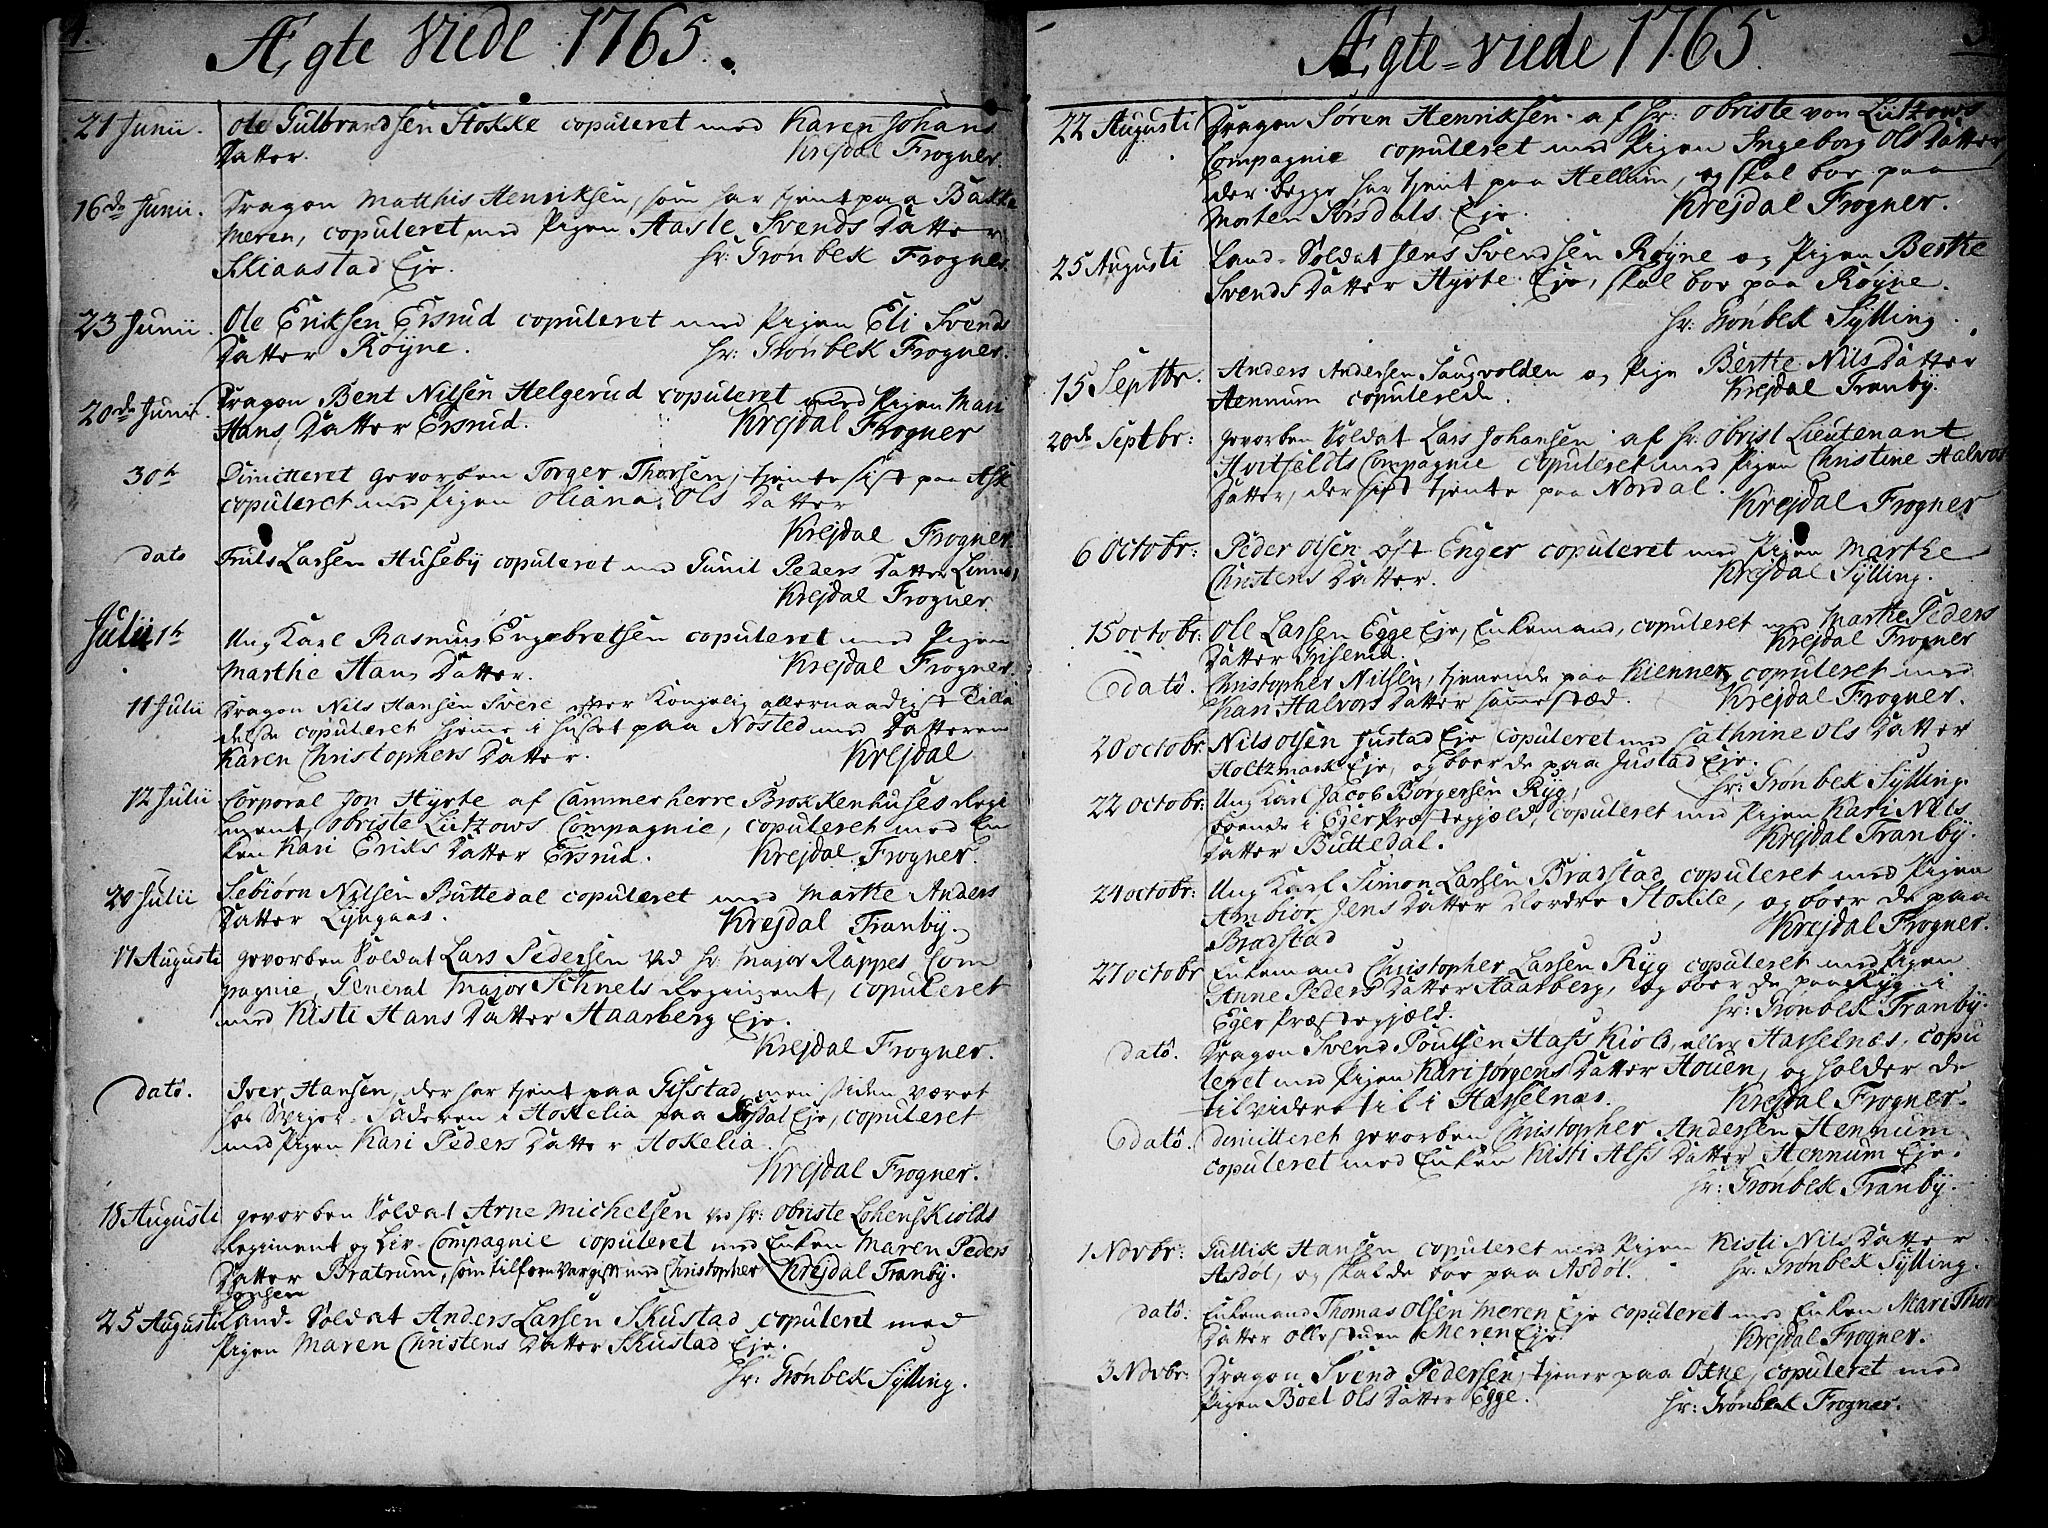 4.
Ægte Viede 1765.
21 Junii. Ole Gulbrandsen Stokke copuleret med Karen Johans
Datter. Krejdal Frogner.
16de Junii. Dragon Matthis Henriksen, som har tient paa Bakke
Meren, copuleret med Pigen Aasle Svends Datter
Skiaastad Eje. Hr: Grønbek Frogner.
23 Junii. Ole Eriksen Ersrud copuleret med Pigen Eli Svends
Datter Røyne. Hr: Grønbek Frogner.
20de Junii. Dragon Bent Nilsen Helgerud copuleret med Pigen Mari
Hans Datter Ersrud. Krejdal Frogner
30h Dimitteret gevorben Torger Thorsen, tiente sist paa Ask
copuleret med Pigen Oliana Ols Datter
Krejdal Frogner.
dato Truls Larsen Huseby copuleret med Gunil Peders Datter Linnes,
Krejdal Frogner
Julii 1h Ung Karl Rasmus Engebretsen copuleret med Pigen
Marthe Hans Datter. Krejdal Frogner.
11 Julii Dragon Nils Hansen Svere efter Kongelig allernaadigst Tilla
delse copuleret hjemme i Huset paa Nøsted med Datteren
Karen Christophers Datter. Krejdal
12 Julii Corporal Jon Hyrte af Cammerherre Brokkenhuses Regi
ment, Obriste Lützows Compagnie, copuleret med En
ken Kari Eriks Datter Ersrud. Krejdal Frogner.
20 Julii Sebiørn Nilsen Buttedal copuleret med Marthe Anders
Datter Lyngaas. Krejdal Tranby.
17 Augusti gevorben Soldat Lars Pedersen ved Hr: Major Rappes Com
pagnie, General Major Schnels Regiment, copuleret
med Kisti Hans Datter Haarberg Eje.
Krejdal Frogner.
dato. Iver Hansen, der har tient paa Gifstad, men siden været
hos Sverjer Faderen i Hokelia paa Eje, copuleret
med Pigen Kari Peders Datter Hokelia.
Krejdal Frogner.
18 Augusti gevorben Soldat Arne Michelsen ved Hr: Obriste Lohenskiolds
Regiment og Liv-Compagnie copuleret med Enken Maren Peders
Datter Bratrum, som tilforn var gift med Christopher Krejdal Tranby.
Jonsen
25 Augusti Land-Soldat Anders Larsen Skustad copuleret med
Pigen Maren Christens Datter Skustad Eje.
Hr: Grønbek Sylling.
Ægte-Viede 1765
22 Augusti Dragon Søren Henriksen af Hr: Obriste von Lützows
Compagnie copuleret med Pigen Ingeborg Ols Datter,
der begge har tient paa Hellum, og skal boe paa
Morten Sørsdals Eje. Krejdal Frogner.
25 Augusti Land-Soldat Jens Svendsen Røyne og Pigen Berthe
Svends Datter Hyrte Eje, skal boe paa Røyne.
Hr: Grønbek Sylling.
15 Septbr. Anders Andersen Saugvolden og Pige Berthe Nils Datter
Hennum copulerede. Krejdal Tranby.
20de Septbr: gevorben Soldat Lars Johansen af Hr: Obrist Lieutenant
Hvitfeldts Compagnie copuleret med Pigen Christine Halvors
Datter, der sist tiente paa Nordal. Krejdal Frogner
6 Octobr: Peder Olsen øst Enger copuleret med Pigen Marthe
Christens Datter. Krejdal Sylling.
15 Octobr: Ole Larsen Egge Eje, Enkemand, copuleret med Marthe Peders
Datter Grisenid. Krejdal Frogner
dato. Christopher Nilsen, tienende paa Kienner, copuleret med
Kari Halvors Datter sammested. Krejdal Frogner.
20 Octobr: Nils Olsen Justad Eje copuleret med Cathrine Ols Datter
Holtzmark Eje, og boer de paa Justad Eje.
Hr: Grønbek Sylling.
22 Octobr: Ung Karl Jacob Børgersen Ryg,
boende i Eger Præstegield, copuleret med Pigen Kari Nils
Datter Buttedal. Krejdal Tranby.
24 Octobr: Ung Karl Simon Larsen Bradstad copuleret med Pigen
Ambiør Jens Datter Nordre Stokke, og boer de paa
Bradstad Krejdal Frogner.
27 Octobr Enkemand Christopher Larsen Ryg copuleret med Pigen
Anne Peders Datter Haarberg, og boer de paa Ryg i
Eger Præstegield. Hr: Grønbek Tranby.
dato. Dragon Svend Poulsen Hasskiold eller Hasselnæs, copu
leret med Pigen Kari Jørgens Datter Houen, og holder de
til videre til i Hasselnæs. Krejdal Frogner.
dato. dimitteret gevorben Christopher Andersen Hennum
copuleret med Enken Kisti Alfs Datter Hennum Eje.
Hr: Grønbek Tranby.
1 Novbr: Gullik Hansen copuleret med Pigen Kisti Nils Datter
Asdøl, og skal de boe paa Asdøl. Hr: Grønbek Sylling.
dato: Enkemand Thomas Olsen Meren Eje copuleret med Enken Mari Thors
Datter Ollestuen Meren Eje. Krejdal Frogner.
3 Novbr: Dragon Svend Pedersen, tiener paa Oxne, copuleret med
Pigen Boel Ols Datter Egge. Hr: Grønbek Frogner.